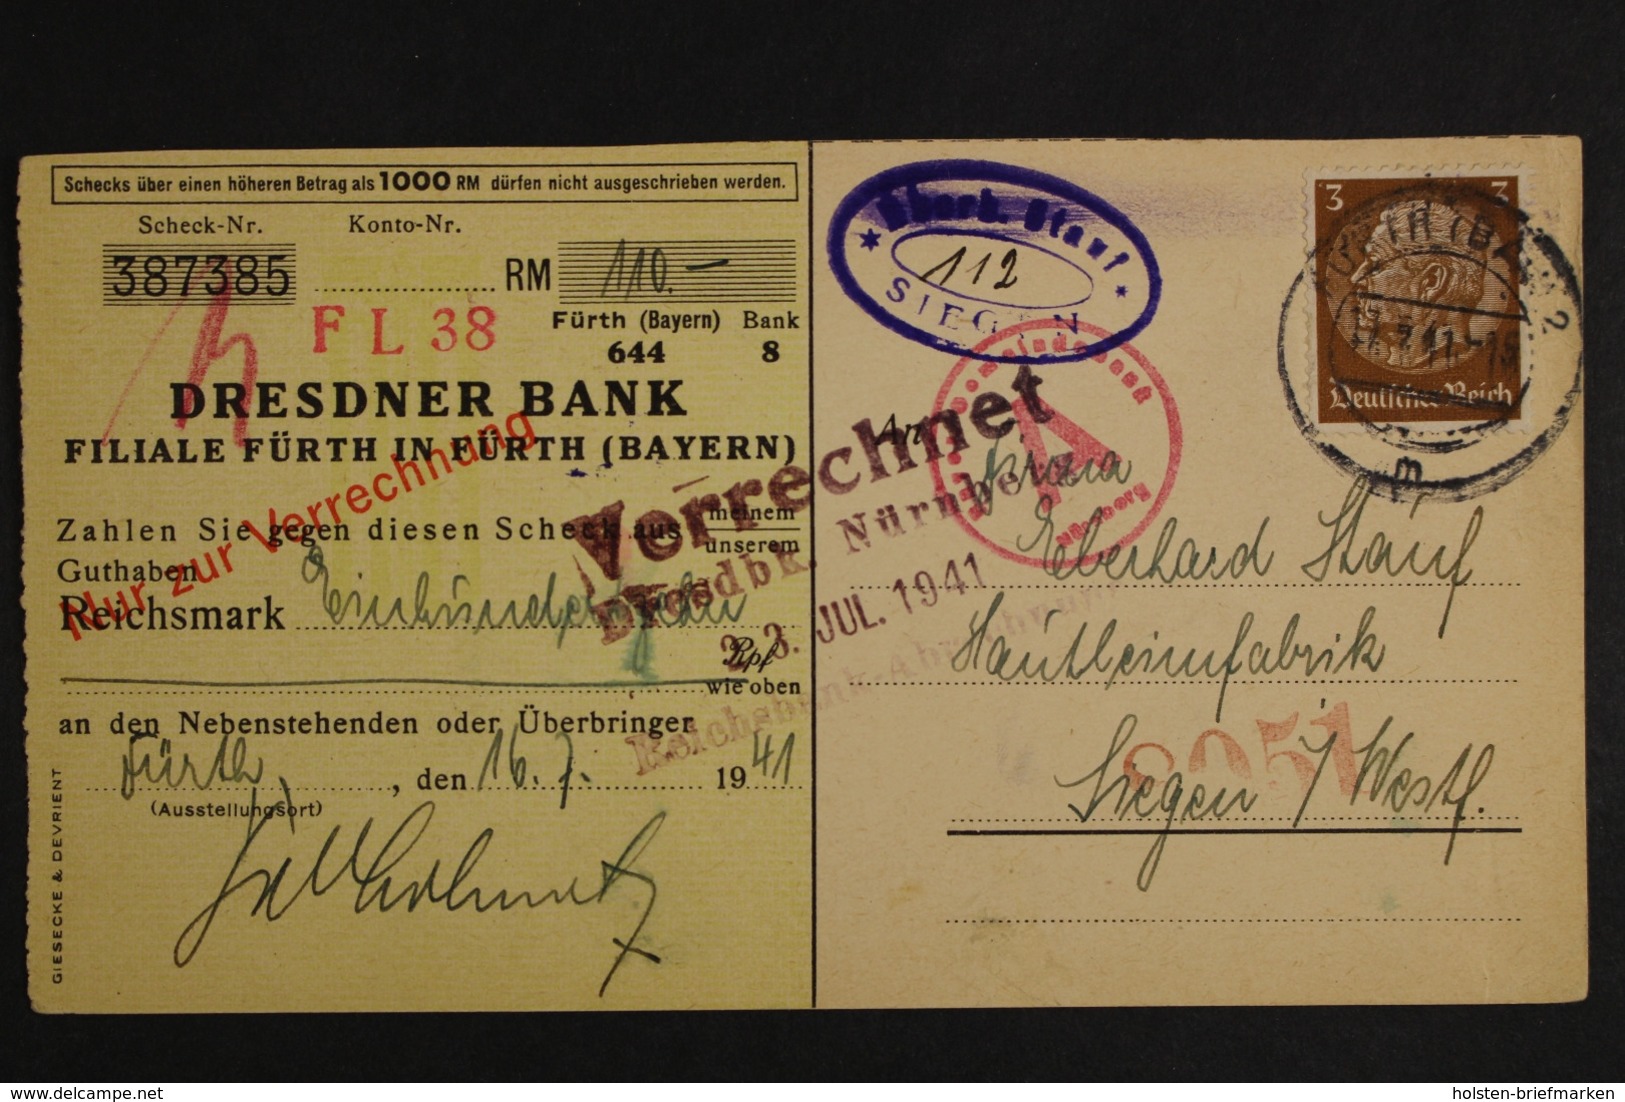 Schecks über einen höheren Betrag als 1000 RM dürfen nicht ausgeschrieben werden.
Scheck-Nr. Konto-Nr.
387385 RM 110.—
FL 38
Fürth (Bayern) Bank
644 8
DRESDNER BANK
FILIALE FÜRTH IN FÜRTH (BAYERN)
Nur zur Verrechnung
Zahlen Sie gegen diesen Scheck aus meinem
unserem
Guthaben
Reichsmark Einhundertzehn
Rpf
wie oben
an den Nebenstehenden oder Überbringer
Fürth, den 16.7. 1941
(Ausstellungsort)
GIESECKE & DEVRIENT
Verrechnet
Dresdbk. Nürnberg
23. JUL. 1941
Reichsbank-Abrechnung
Eberh. Stauf
112
SIEGEN
A
Nürnberg
3 3
Deutsches Reich
FÜRTH (BAY) 2
17.7.41.-15
m
An
Firma
Eberhard Stauf
Hautleimfabrik
8051
Siegen i/Westf.
delcampe.net
holsten-briefmarken